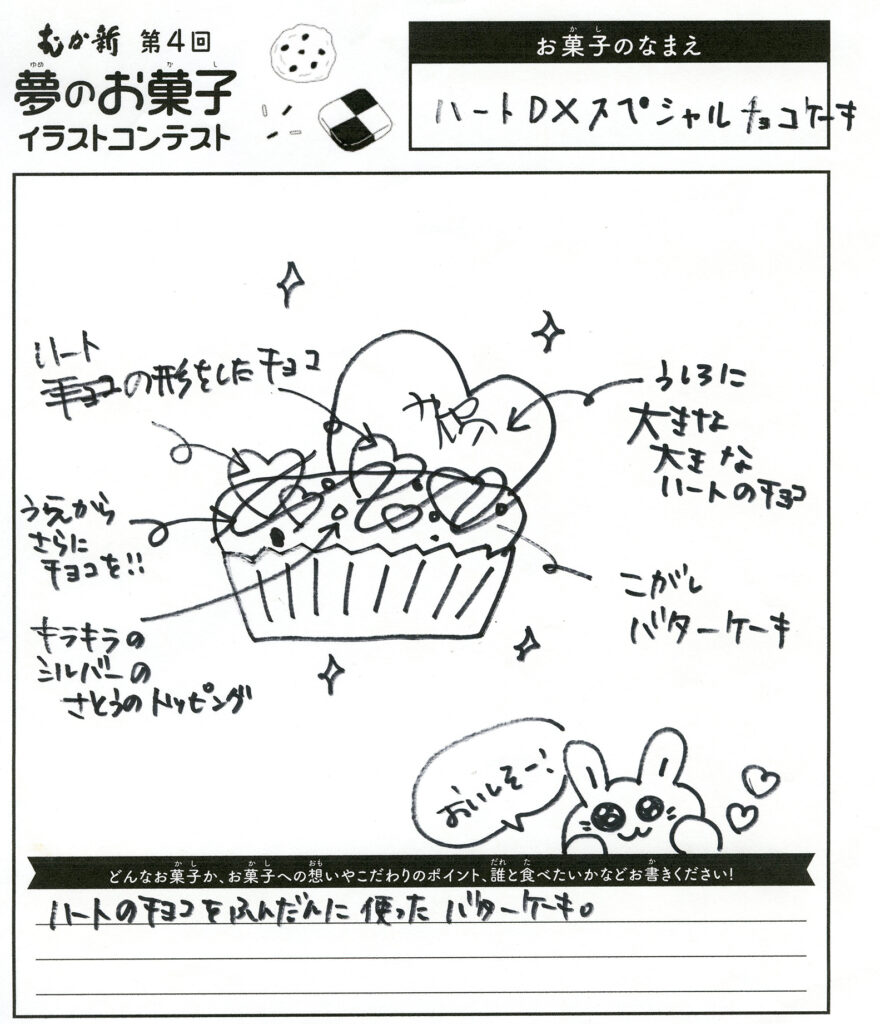 むか新 第4回
夢のお菓子
イラストコンテスト
お菓子のなまえ
ハートDXスペシャルチョコケーキ
ハート
の形をしたチョコ
うしろに
大きな
大きな
ハートのチョコ
うえから
さらに
チョコを!!
こがし
バターケーキ
キラキラの
シルバーの
さとうのトッピング
おいしそー!
どんなお菓子か、お菓子への想いやこだわりのポイント、誰と食べたいかなどお書きください!
ハートのチョコをふんだんに使ったバターケーキ。